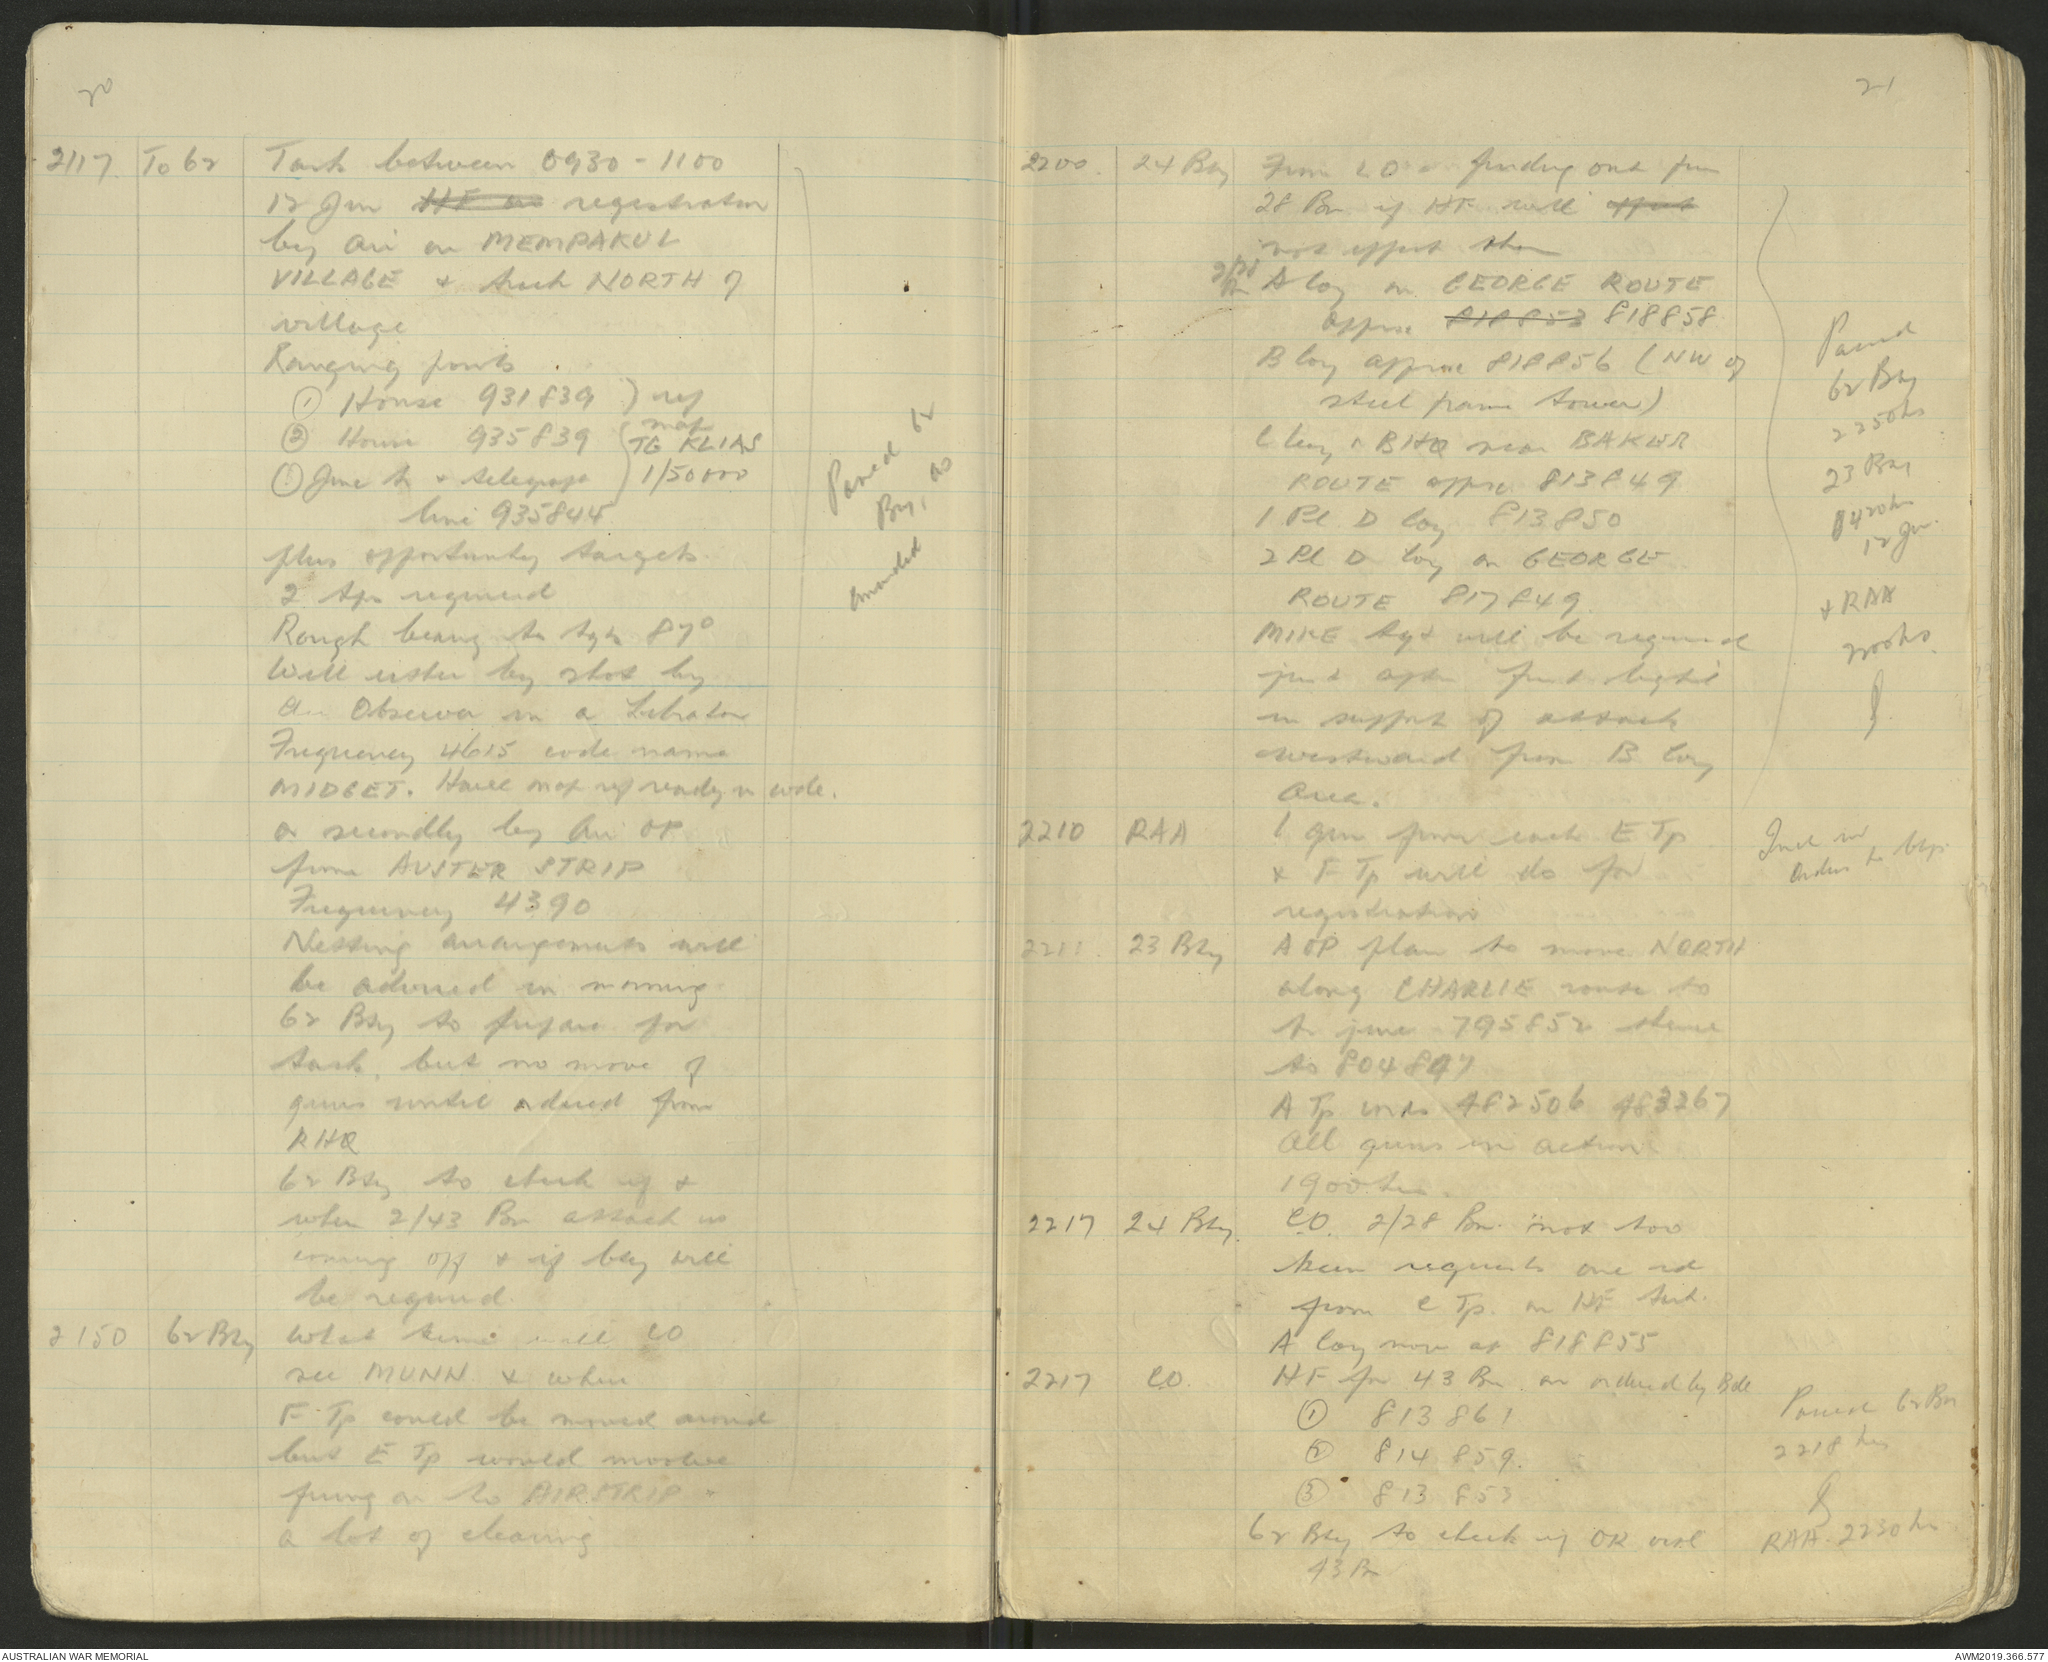 20
2117 To 62 Task between 0930 - 1100
12 Jun HF on registration
by Air on MEMPAKUL
VILLAGE & track NORTH of
village
Ranging points
① House 931839 ) ref
map
② House 935839 TG KLIAS
① Junc tr & telegraph 1/50000
line 935844
plus opportunity targets.
2 tps required
Rough bearing to tgts 87°
Will either by shot by
Air Observer in a Liberator
Frequency 4615 code name
MIDGET. Have map ref ready in code.
or secondly by Air OP
from AUSTER STRIP
Frequency 4390
Netting arrangements will
be advised in morning.
62 Bty to prepare for
task, but no move of
guns until ordered from
RHQ
62 Bty to check if &
when 2/43 Bn attack is
coming off & if bty will
be required.
Passed 62
Bty, as
amended
2150 62 Bty What time will CO
see MUNN & when
F Tp could be moved around
but E Tp would involve
firing on to AIRSTRIP
a lot of clearing
21
2200. 24 Bty From LO - finding out from
28 Bn if HF will effect
not effect them
A Coy on GEORGE ROUTE
approx 818853 818858
B Coy approx 818856 (NW of
steel frame tower)
C Coy & BHQ near BAKER
ROUTE approx 813849
1 Pl D Coy 813850
2 Pl D Coy on GEORGE
ROUTE 817849
MIKE tgt will be required
just after first light
in support of attack
westward from B Coy
area.
Passed
62 Bty
2250hrs
23 Bty
0420hrs
12 Jun.
& RAA
2200hrs.
2210 RAA 1 gun from each E Tp
& F Tp will do for
registration
Incl in
Orders to btys.
2211. 23 Bty A OP plan to move NORTH
along CHARLIE route to
tr junc 795852 thence
to 804847
A Tp cords 482506 483267
All guns in action
1900hrs.
2217 24 Bty. CO. 2/28 Bn. not too
keen requests one rd
from C Tp. on HF task.
A Coy now at 818855
2217 CO. HF for 43 Bn as ordered by Bde
① 813861
② 814859.
③ 813853
62 Bty to check if OK with
43 Bn
Passed 62 Bty
2218 hrs
RAA. 2230 hrs
AUSTRALIAN WAR MEMORIAL
AWM2019.366.577